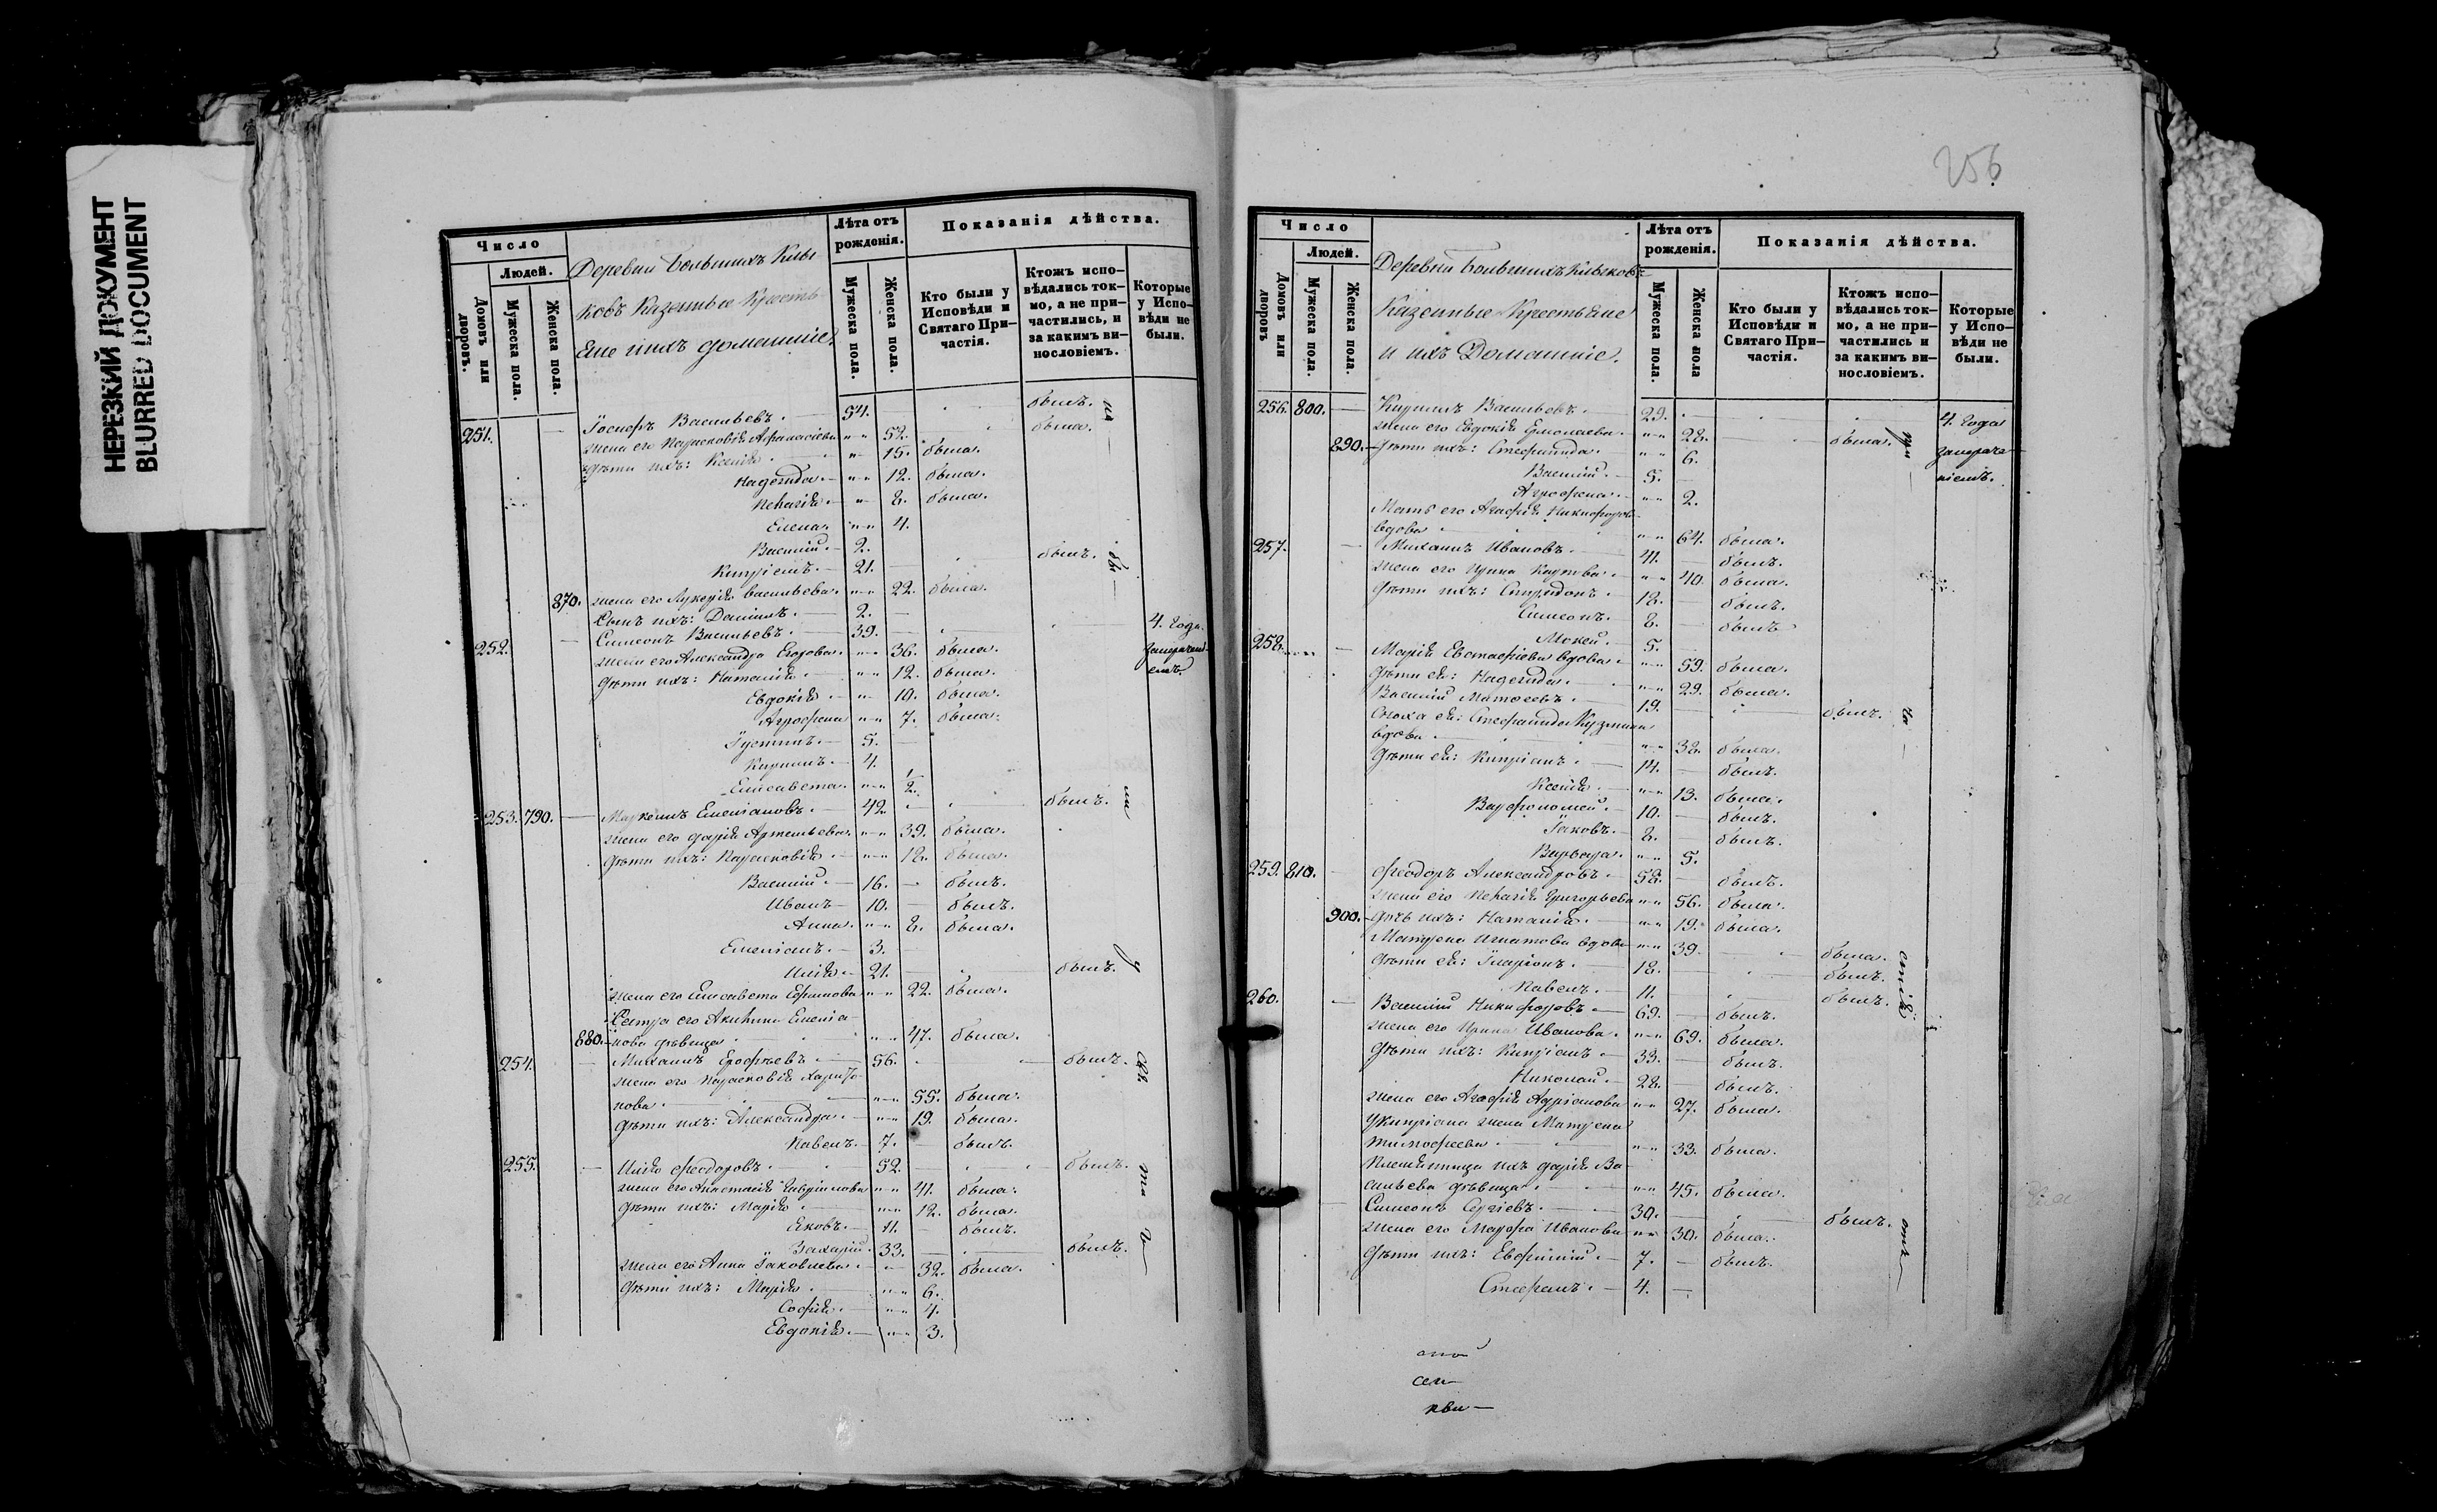 НЕРЕЗКИЙ ДОКУМЕНТ
BLURRED DOCUMENT
Число
Людей.
Домовъ или дворовъ.
Мужеска пола.
Женска пола.
Деревни Большихъ Кле
ковъ Казенные Кресть
яне и ихъ домашніе.
Лѣта отъ рожденія.
Мужеска пола.
Женска пола.
Показанія дѣйства.
Кто были у Исповѣди и Святаго При-частія.
Ктожъ испо-вѣдались ток-мо, а не при-частились, и за какимъ ви-нословіемъ.
Которые у Испо-вѣди не были.
251. — Іосифъ Васильевъ. 54. былъ.
жена его Парасковія Афанасіева 52. была.
дѣти ихъ: Ксенія 15. была.
Надежда 12. была.
Пелагія 8. была.
Елена 4.
Василій 2.
Кипріанъ 21. былъ.
870. жена его Лукерія Васильева 22. была.
Сынъ ихъ: Даніилъ 2.
252. — Симеонъ Васильевъ. 39. 4. года
жена его Александра Егорова 36. была.
дѣти ихъ: Наталія 12. была.
Евдокія 10. была.
Агрофена 7. была.
Іустинъ 5.
Кирилъ 4.
Елисавета 1/2.
253. 790. — Маркелъ Емеліановъ. 42. былъ.
жена его Дарія Артемьева 39. была.
дѣти ихъ: Парасковія 18. была.
Василій 16. былъ.
Иванъ 10. былъ.
Анна 8. была.
Емеліанъ 3.
Илія 21. былъ.
жена его Елисавета Ефимова 22. была.
Сестра его Акилина Емеліа-
880. нова дѣвица 47. была.
254. — Михаилъ Ерофѣевъ 56. былъ.
жена его Парасковія Харито-
нова 55. была.
дѣти ихъ: Александра 19. была.
Павелъ 7. былъ.
255. — Илія Феодоровъ 52. былъ.
жена его Анастасія Гаврилова 41. была.
дѣти ихъ: Марія 12. была.
Яковъ 11. былъ.
Захарій 33. былъ.
жена его Анна Іаковлева 32. была.
дѣти ихъ: Марія 6.
Софія 4.
Евдокія 3.
256
Число
Людей.
Домовъ или дворовъ
Мужеска пола.
Женска пола.
Деревни Большихъ Клековъ
Казенные Крестьяне
и ихъ Домашніе.
Лѣта отъ рожденія.
Мужеска пола.
Женска пола
Показанія дѣйства.
Кто были у Исповѣди и Святаго При-частія.
Ктожъ испо-вѣдались ток-мо, а не при-частились и за какимъ ви-нословіемъ.
Которые у Испо-вѣди не были.
256. 800. — Кирилъ Васильевъ. 29. 4. года
жена его Евдокія Ермолаева 28. была.
890. дѣти ихъ: Стефанида 6.
Василій 5.
Агрофена 2.
Мать его Агафія Никифоров
вдова 64. была.
257. — Михаилъ Ивановъ. 41. былъ.
жена его Ирина Карпова 40. была.
дѣти ихъ: Спиридонъ 12. былъ.
Симеонъ 8. былъ
Мокей 5.
258. — Марія Евстафіева вдова 59. была.
дѣти ея: Надежда 29. была.
Василій Матвеевъ 19. былъ.
Сноха ея: Стефанида Кузмина
вдова 38. была.
дѣти ея: Кипріанъ 14. былъ.
Ксенія 13. была.
Варфоломей 10. былъ.
Іаковъ 8. былъ.
Варвара 5.
259. 810. — Феодоръ Александровъ 58. былъ.
жена его Пелагія Григорьева 56. была.
900. дѣти ихъ: Наталія 19. была.
Матрона Игнатова вдова 39. была.
дѣти ея: Иларіонъ 18. былъ.
Павелъ 11. былъ.
260. — Василій Никифоровъ 69. былъ.
жена его Ирина Иванова 69. была.
дѣти ихъ: Кипріанъ 33. былъ.
Николай 28. былъ.
жена его Агафія Адріанова 27. была.
У Кипріана жена Матрена
Тимофеева 33. была.
Племянница ихъ Дарія Ва-
сильева дѣвица 45. была.
Симеонъ Сергіевъ 30. былъ.
жена его Марфа Иванова 30. была.
дѣти ихъ: Евфимій 7. былъ.
Стефанъ 4.